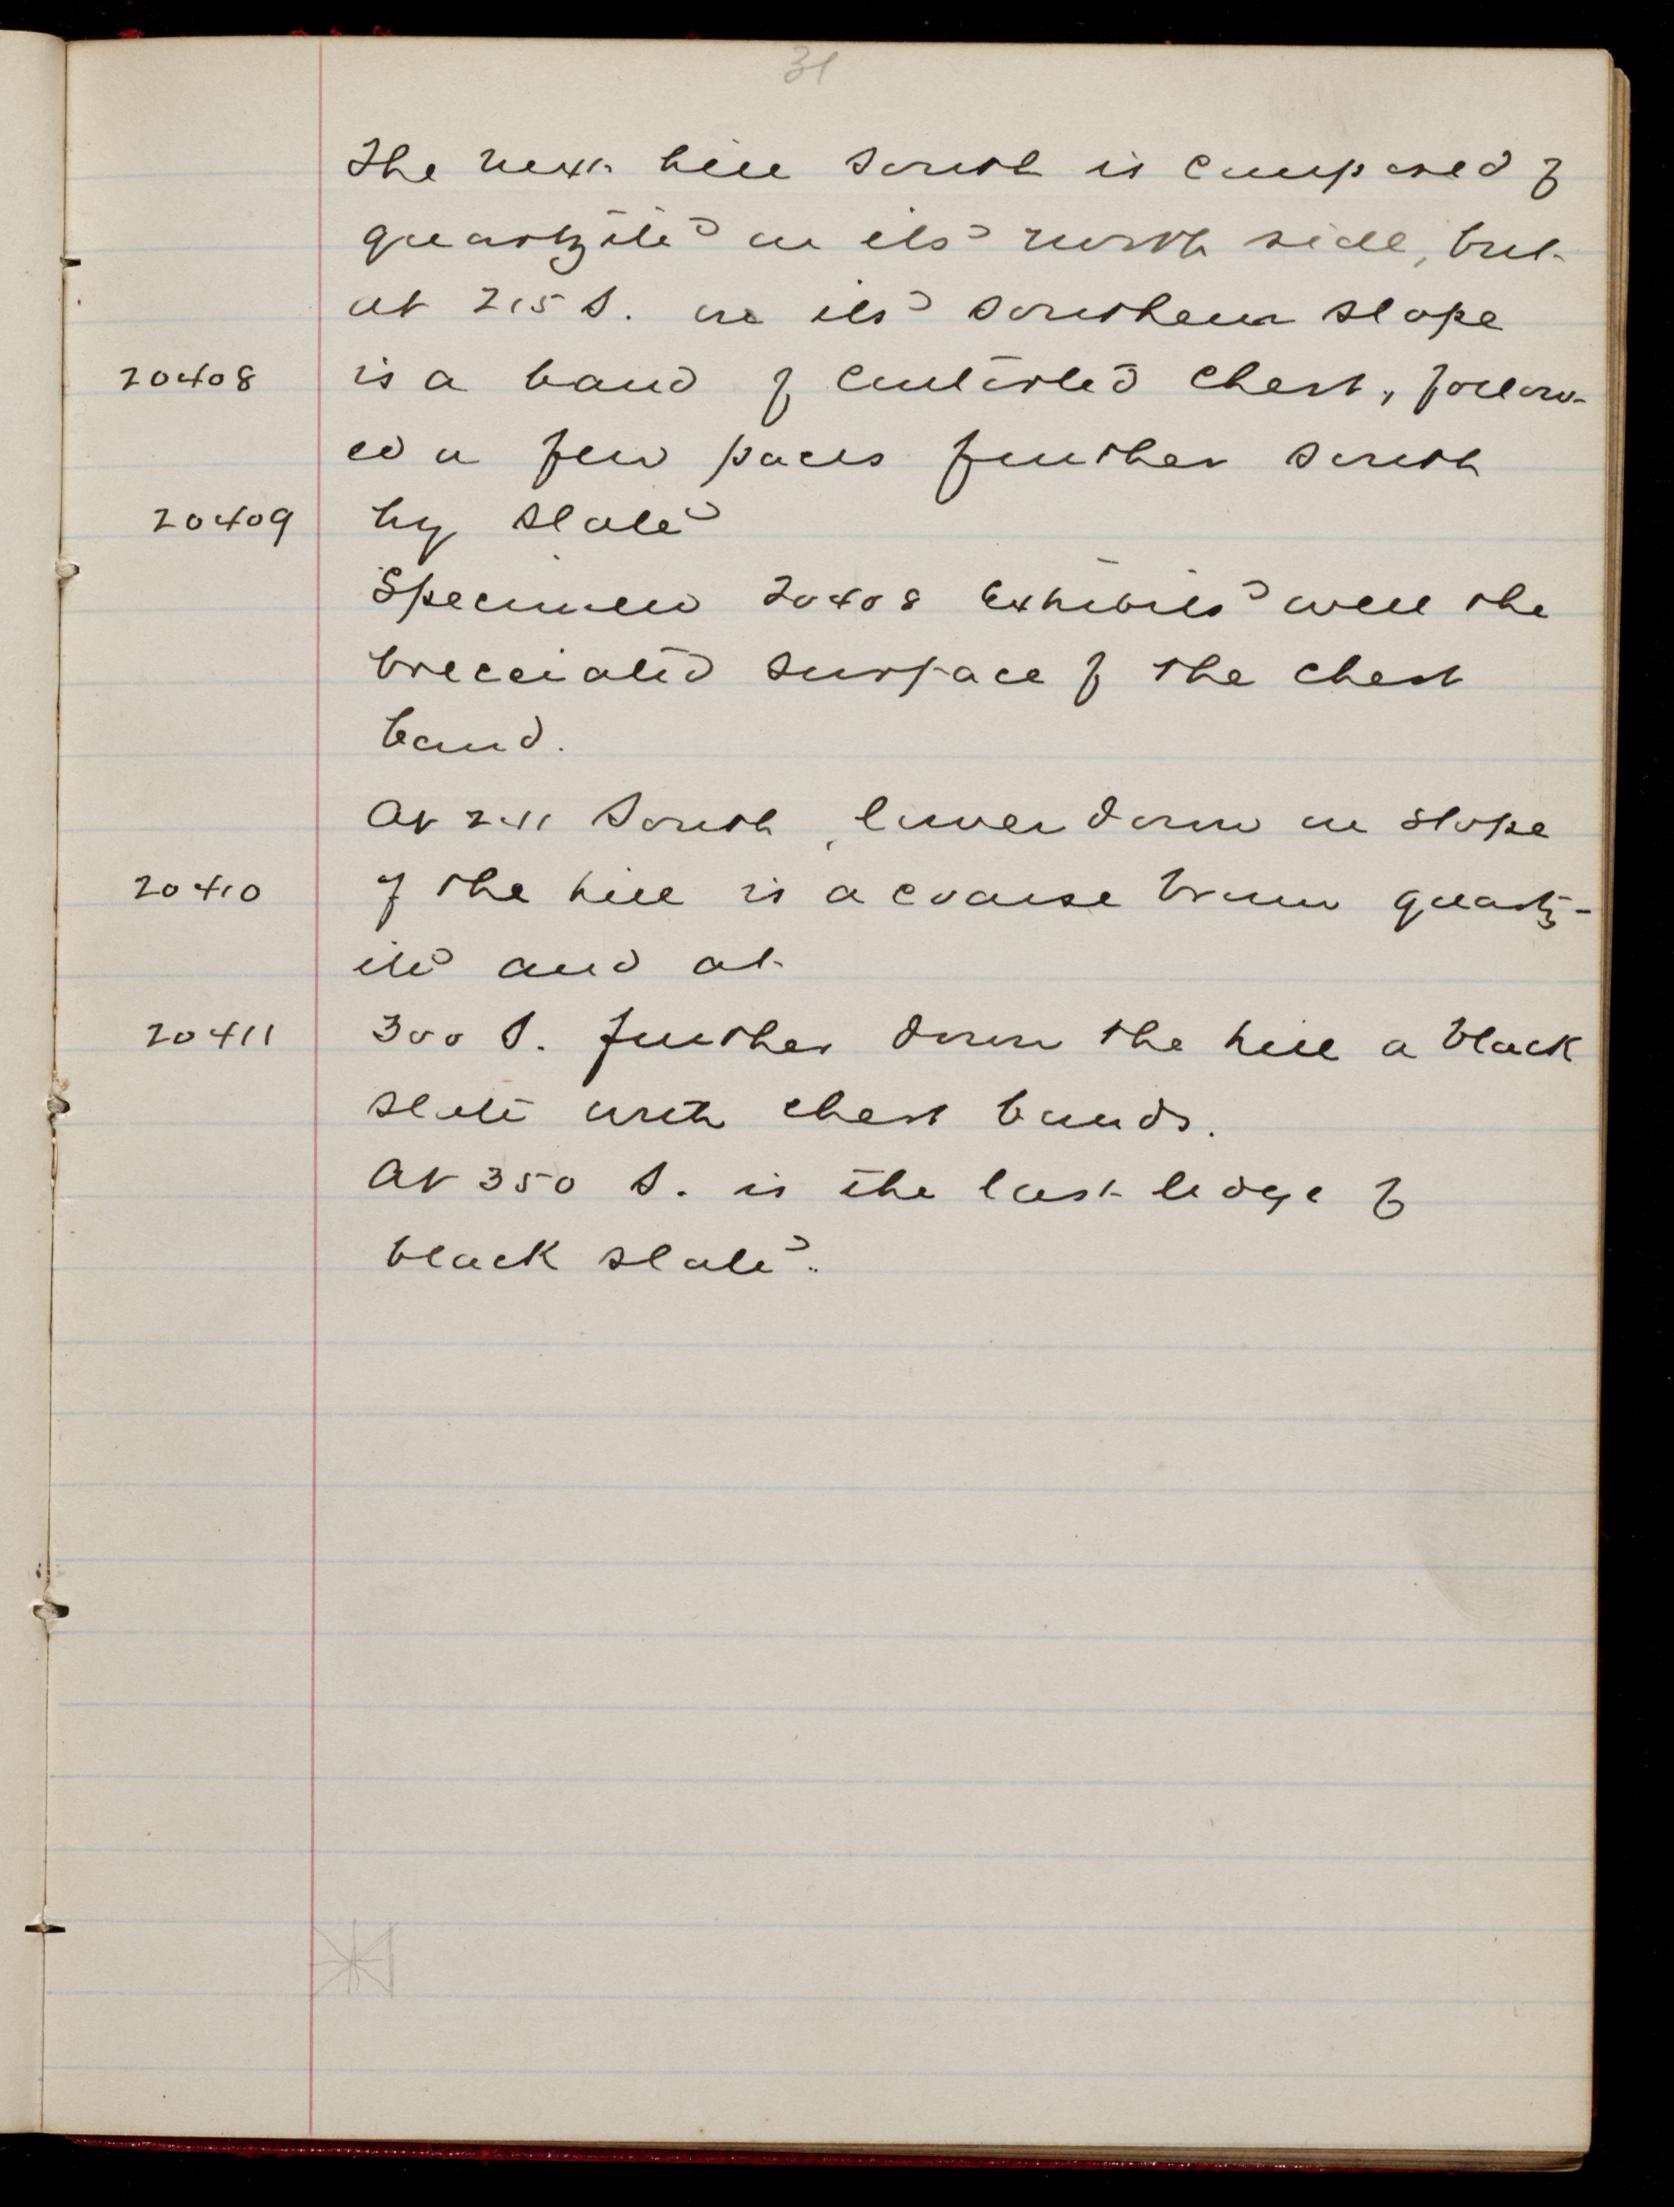 31
The next hill south is composed of
quartzite on its north side, but
at 215 S. on its southern slope
20408 is a band of contorted chert, follow-
ed a few paces further south
20409 by slate
Specimen 20408 exhibits well the
brecciated surface of the chert
band.
At South, lower down on slope
20410 of the hill is a coarse brown quartz-
ite and at
20411 300 S. further down the hill a black
slate with chert bands.
At 350 S. is the last ledge of
black slate.